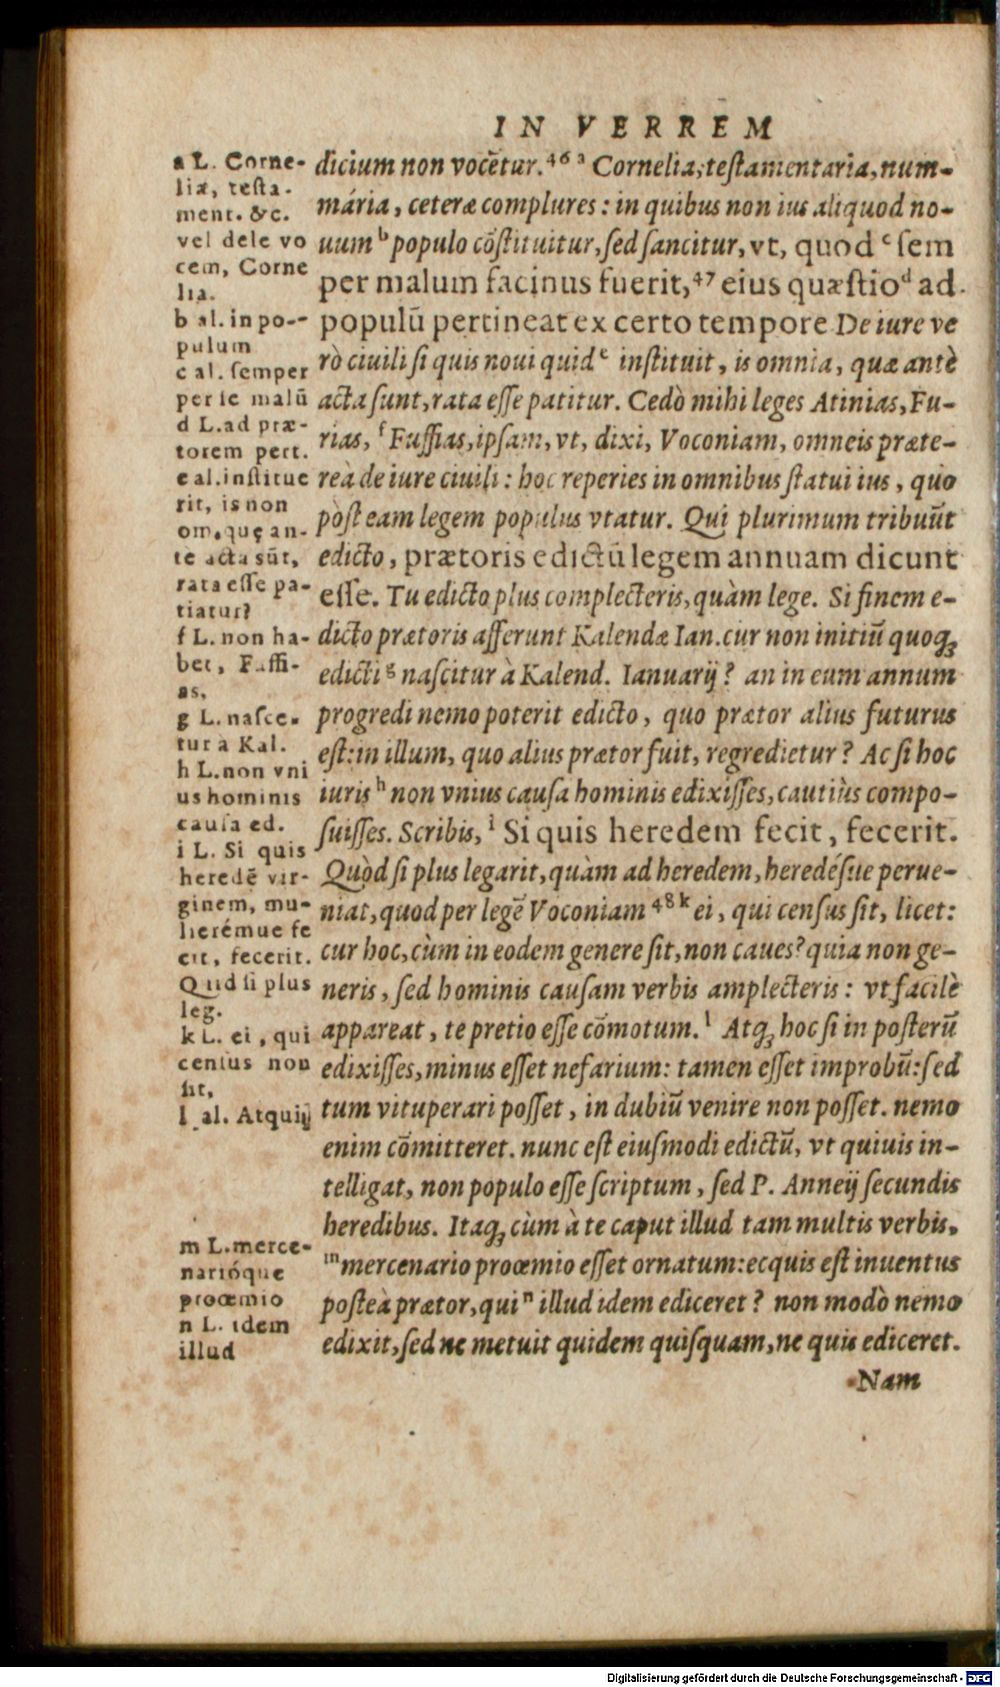 IN VERREM
dicium non vocētur.⁴⁶ ᵃ Cornelia, testamentaria, num-
mária, ceteræ complures: in quibus non ius aliquod no-
uum ᵇ populo cōstituitur, sed sancitur, vt, quod ᶜ sem
per malum facinus fuerit,⁴⁷ eius quæstio ᵈ ad
populū pertineat ex certo tempore De iure ve
rò ciuili si quis noui quid ᵉ instituit, is omnia, quæ antè
acta sunt, rata esse patitur. Cedò mihi leges Atinias, Fu-
rias, ᶠ Fuffias, ipsam, vt, dixi, Voconiam, omneis præte-
reà de iure ciuili: hoc reperies in omnibus statui ius, quo
pòst eam legem populus vtatur. Qui plurimum tribuūt
edicto, prætoris edictū legem annuam dicunt
esse. Tu edicto plus complecteris, quàm lege. Si finem e-
dicto prætoris afferunt Kalendæ Ian. cur non initiū quoq;
edicti ᵍ nascitur à Kalend. Ianuarij? an in eum annum
progredi nemo poterit edicto, quo prætor alius futurus
est: in illum, quo alius prætor fuit, regredietur? Ac si hoc
iuris ʰ non vnius causa hominis edixisses, cautiùs compo-
suisses. Scribis, ⁱ Si quis heredem fecit, fecerit.
Quòd si plus legarit, quàm ad heredem, heredésue perue-
niat, quod per legē Voconiam ⁴⁸ ᵏ ei, qui census sit, licet:
cur hoc, cùm in eodem genere sit, non caues? quia non ge-
neris, sed hominis causam verbis amplecteris: vt facilè
appareat, te pretio esse cōmotum. ˡ Atq; hoc si in posterū
edixisses, minus esset nefarium: tamen esset improbū: sed
tum vituperari posset, in dubiū venire non posset. nemo
enim cōmitteret. nunc est eiusmodi edictū, vt quiuis in-
telligat, non populo esse scriptum, sed P. Anneij secundis
heredibus. Itaq; cùm à te caput illud tam multis verbis,
ᵐ mercenario proœmio esset ornatum: ecquis est inuentus
posteà prætor, qui ⁿ illud idem ediceret? non modò nemo
edixit, sed ne metuit quidem quisquam, ne quis ediceret.
Nam
a L. Corne-
liæ, testa-
ment. &c.
vel dele vo
cem, Corne
lia.
b al. in po-
pulum
c al. semper
per se malū
d L. ad præ-
torem pert.
e al. institue
rit, is non
om. quę an-
te acta sūt,
rata esse pa-
tiatur?
f L. non ha-
bet, Fuffi-
as.
g L. nasce-
tur à Kal.
h L. non vni
us hominis
causa ed.
i L. Si quis
heredē vir-
ginem, mu-
lierémue fe
cit, fecerit.
Quid si plus
leg.
k L. ei, qui
census non
sit,
l al. Atquij
m L. merce-
narióque
proœmio
n L. idem
illud
Digitalisierung gefördert durch die Deutsche Forschungsgemeinschaft - DFG